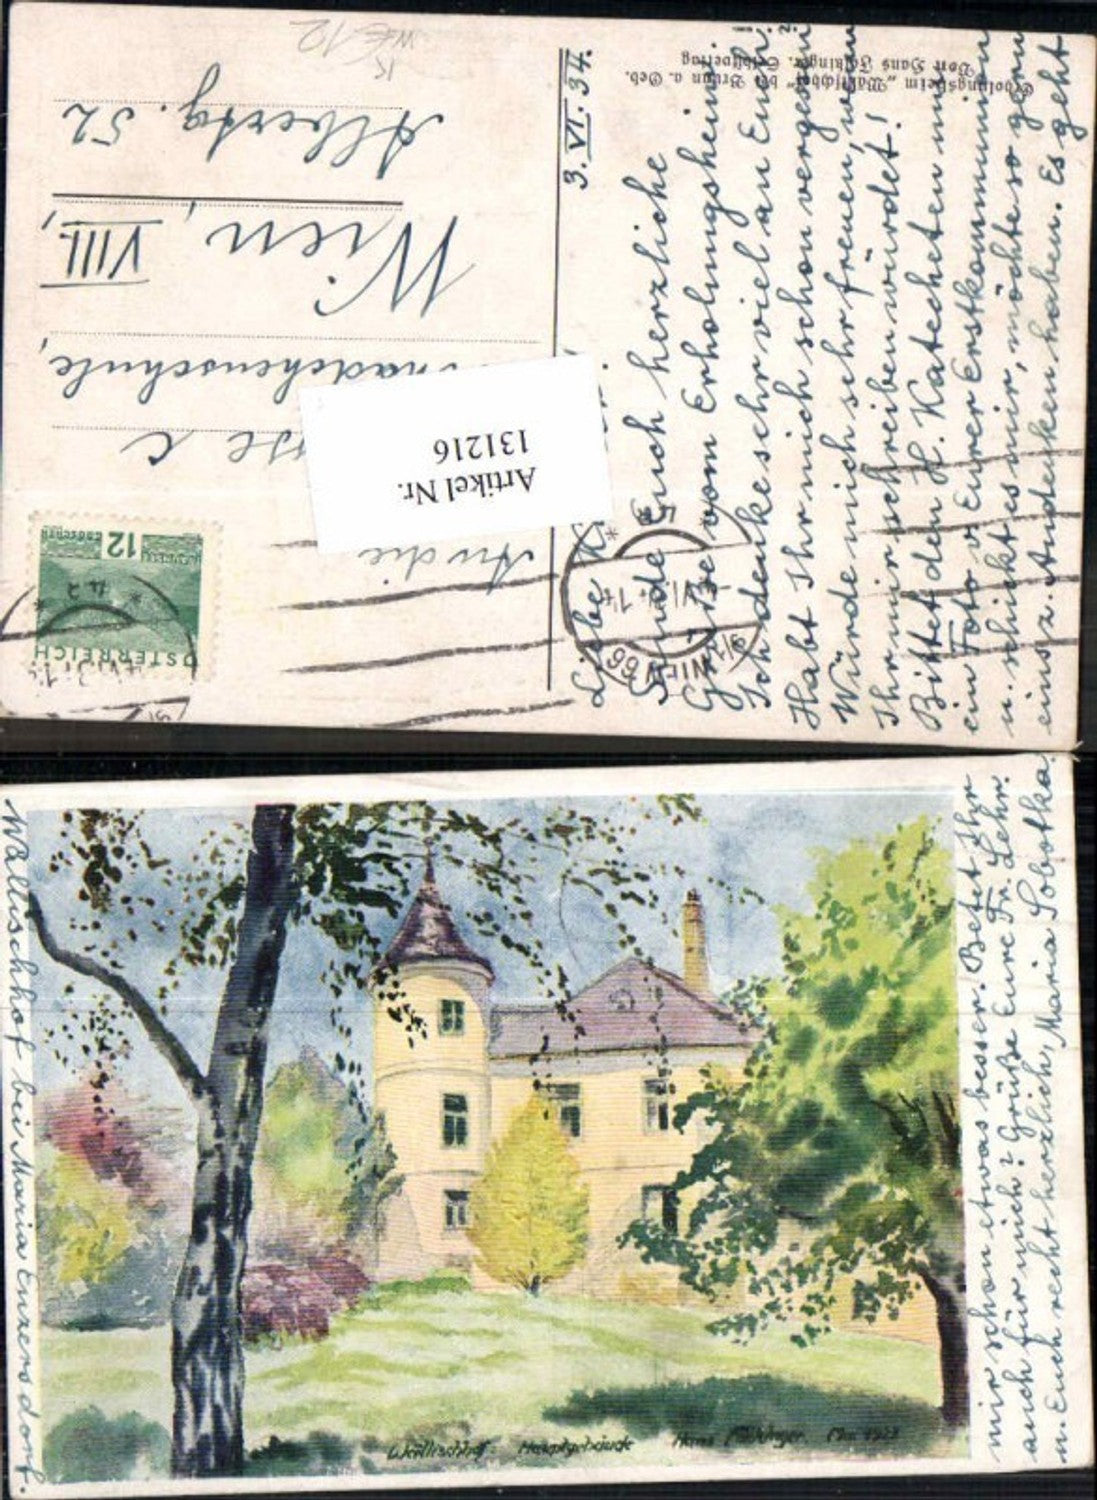 3. VI. 34.
Liebe K
Freunde Euch herzliche
Grüße vom Erholungsheim.
Ich denke sehr viel an Euch.
Habt Ihr mich schon vergessen
Würde mich sehr freuen, wenn
Ihr mir schreiben würdet!
Bittet den H. Katecheten um
ein Foto v. Eurer Erstkommunion
u. schickt es mir, möchte so gern
eins z. Andenken haben. Es geht
mir schon etwas besser. Betet Ihr
auch für mich? Grüße Eure Fr. Lehr.
u. Euch recht herzlich, Maria Sobotka.
An die
se C
mädchenschule,
Wien,
VIII.,
Albertg. 52
Artikel Nr.
131216
12
ÖSTERREICH
WIEN 66
Erholungsheim „Wällischhof" bei Brunn a. Geb.
Von Hans Fölkinger. Selbstverlag
2.
Wällischhof bei Maria Enzersdorf.
Wällischhof Hauptgebäude